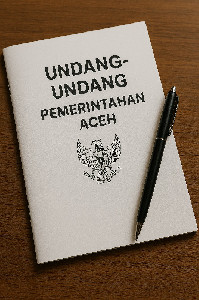 UNDANG-
UNDANG
PEMERINTAHAN
ACEH